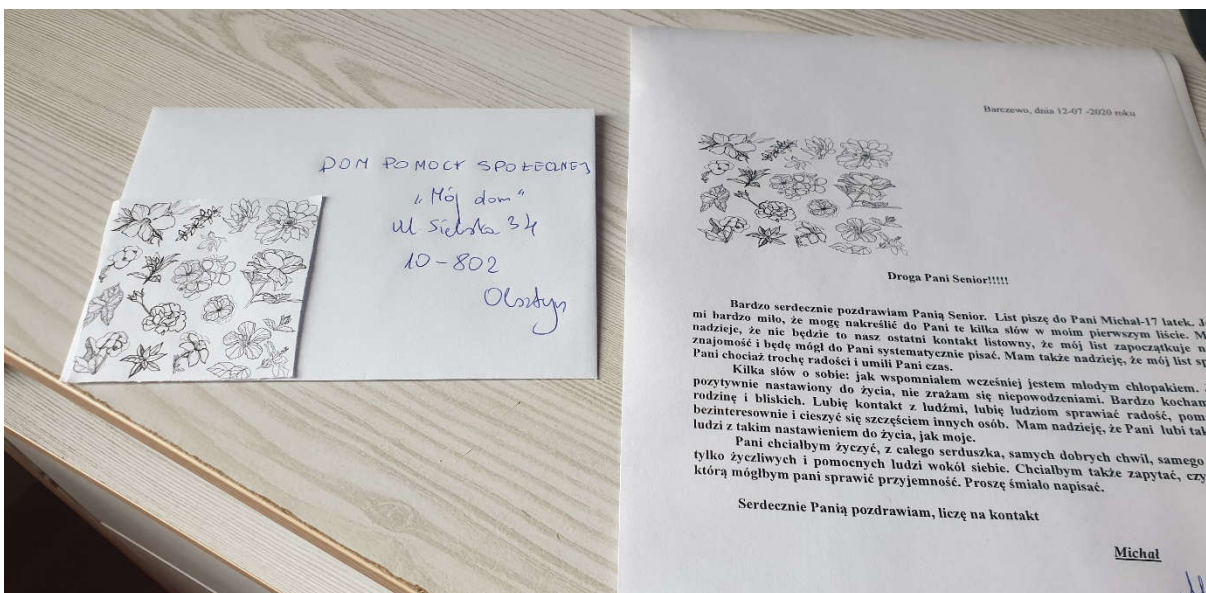 DOM POMOCY SPOŁECZNEJ
„Mój dom"
ul. Sielska 34
10-802
Olsztyn
Barczewo, dnia 12-07 -2020 roku
Droga Pani Senior!!!!!
Bardzo serdecznie pozdrawiam Panią Senior. List piszę do Pani Michał-17 latek.
mi bardzo miło, że mogę nakreślić do Pani te kilka słów w moim pierwszym liście.
nadzieje, że nic będzie to nasz ostatni kontakt listowny, że mój list zapoczątkuje
znajomość i będę mógł do Pani systematycznie pisać. Mam także nadzieję, że mój list
Pani chociaż trochę radości i umili Pani czas.
Kilka słów o sobie: jak wspomniałem wcześniej jestem młodym chłopakiem.
pozytywnie nastawiony do życia, nie zrażam się niepowodzeniami. Bardzo kocham
rodzinę i bliskich. Lubię kontakt z ludźmi, lubię ludziom sprawiać radość,
bezinteresownie i cieszyć się szczęściem innych osób. Mam nadzieję, że Pani lubi
ludzi z takim nastawieniem do życia, jak moje.
Pani chciałbym życzyć, z całego serduszka, samych dobrych chwil, samego
tylko życzliwych i pomocnych ludzi wokół siebie. Chciałbym także zapytać, czy
którą mógłbym pani sprawić przyjemność. Proszę śmiało napisać.
Serdecznie Panią pozdrawiam, liczę na kontakt
Michał